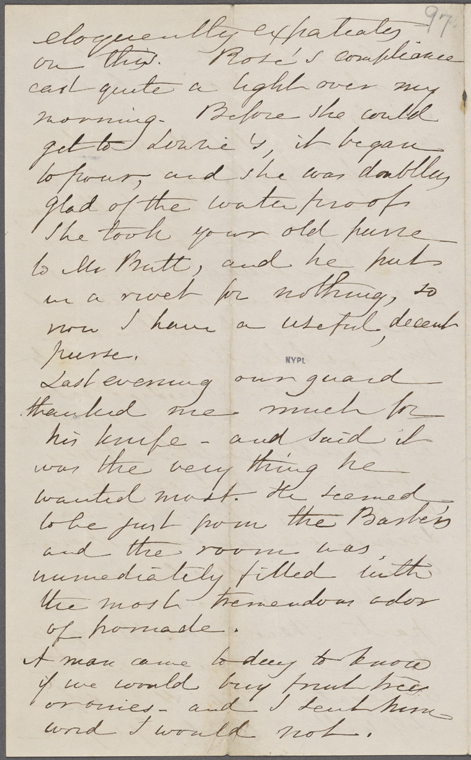 97
eloquently expatiates
on this. Rose's compliance
cast quite a light over my
morning. Before she could
get to Lowrie's, it began
to pour, and she was doubtless
glad of the waterproof.
She took your old purse
to Mr Butt, and he puts
in a rivet for nothing, so
now I have a useful, decent
purse.
NYPL
Last evening our guard
thanked me much for
his knife - and said it
was the very thing he
wanted most. He seemed
to be just from the Barber's
and the room was
immediately filled with
the most tremendous odor
of pomade.
A man came today to know
if we would buy fruit trees
or vines - and I sent him
word I would not.